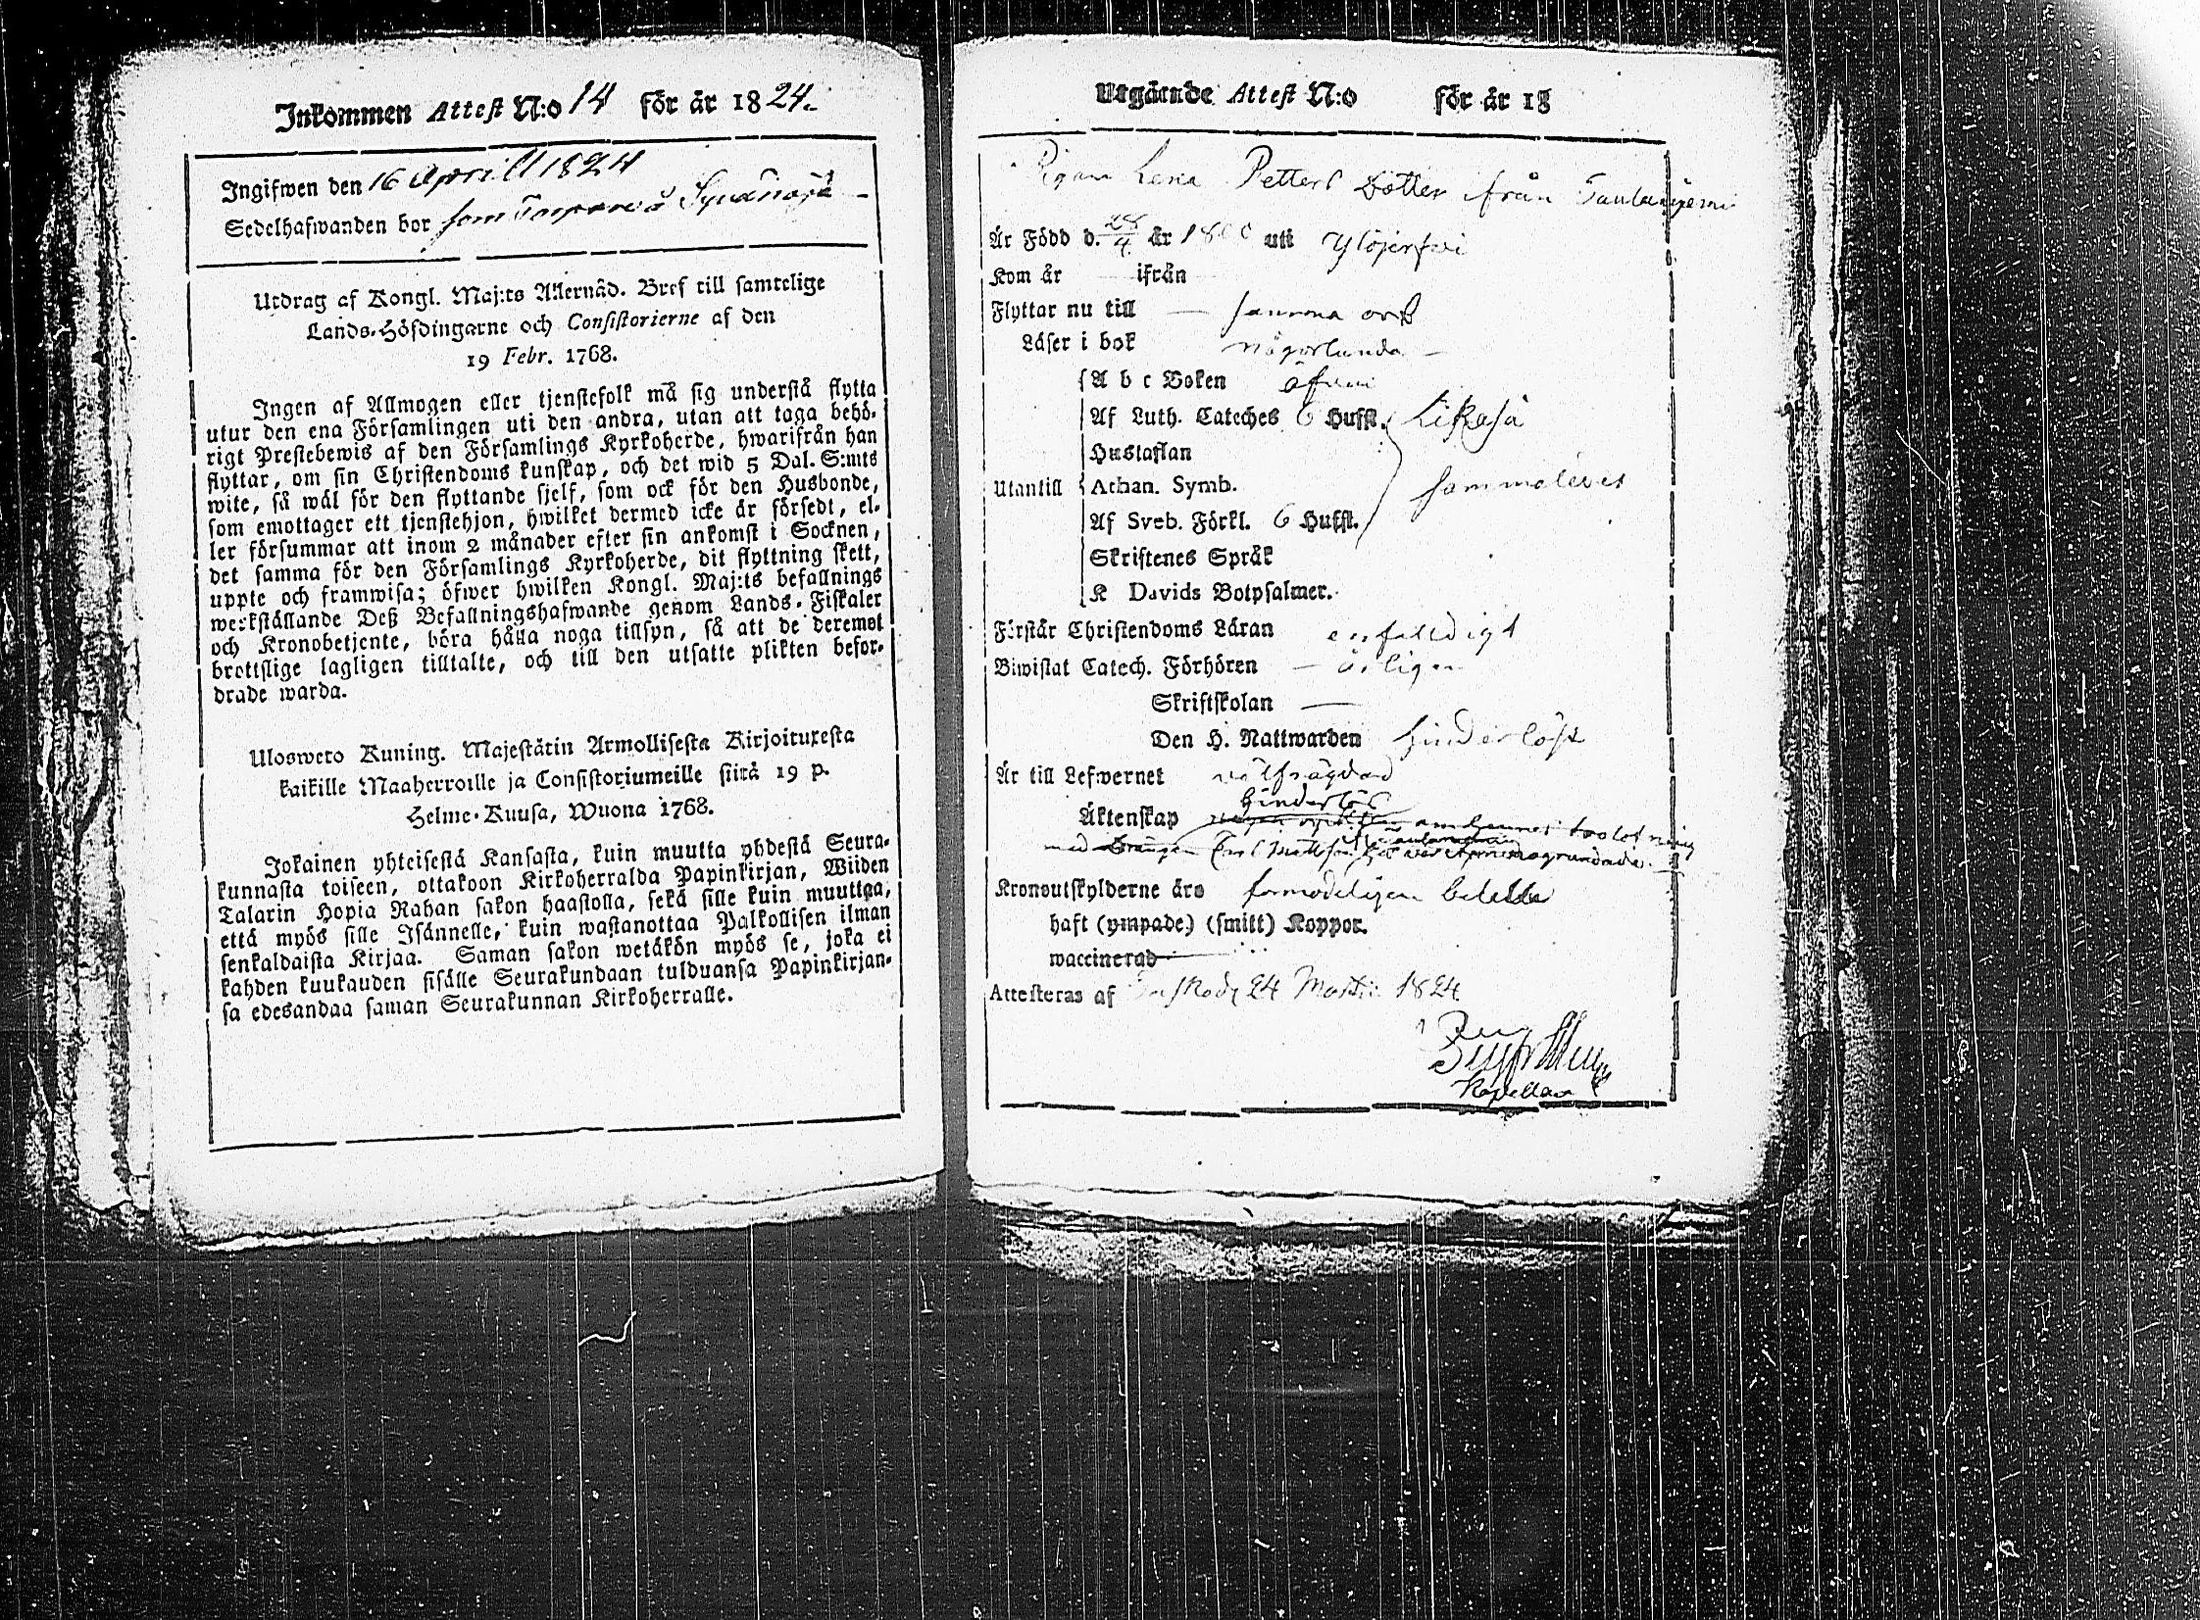 Inkommen Attest N:o 14 för år 1824.
Ingifwen den 16 Aprill 1824
Sedelhafwanden bor som å
Utdrag af Kongl. Maj:ts Allernåd. Bref till samtelige
Lands-Höfdingarne och Consistorierne af den
19 Febr. 1768.
Ingen af Allmogen eller tjenstefolk må sig understå flytta
utur den ena Församlingen uti den andra, utan att taga behö-
rigt Prestebewis af den Församlings Kyrkoherde, hwarifrån han
flyttar, om sin Christendoms kunskap, och det wid 5 Dal. S:mts
wite, så wäl för den flyttande sjelf, som ock för den Husbonde,
som emottager ett tjenstehjon, hwilket dermed icke är försedt, el-
ler försummar att inom 2 månader efter sin ankomst i Socknen,
det samma för den Församlings Kyrkoherde, dit flyttning skett,
uppte och framwisa; öfwer hwilken Kongl. Maj:ts befallnings
werkställande Deß Befallningshafwande genom Lands-Fiskaler
och Kronobetjente, böra hålla noga tillsyn, så att de deremot
brottslige lagligen tilltalte, och till den utsatte plikten befor-
drade warda.
Ulosweto Kuning. Majestätin Armollisesta Kirjoituxesta
kaikille Maaherroille ja Consistoriumeille siitä 19 p.
Helme-Kuusa, Wuona 1768.
Jokainen yhteisestä Kansasta, kuin muutta yhdestä Seura-
kunnasta toiseen, ottakoon Kirkoherralda Papinkirjan, Wiiden
Talarin Hopia Rahan sakon haastolla, sekä sille kuin muuttaa,
että myös sille Isännelle, kuin wastanottaa Palkollisen ilman
senkaldaista Kirjaa. Saman sakon wetäkön myös se, joka ei
kahden kuukauden sisälle Seurakundaan tulduansa Papinkirjan-
sa edesandaa saman Seurakunnan Kirkoherralle.
Utgående Attest N:o för år 18
Pigan Lena Petters Dotter ifrån
Är Född d. 28/4 år 1800 uti Ylöjerfwi
Kom år — ifrån
Flyttar nu till — samma ort
Läser i bok någorlunda —
A b c Boken äfven
Af Luth. Cateches 6 Hufst. Likaså
Hustaflan
Utantill Athan. Symb. sammaledes
Af Sveb. Förkl. 6 Hufst.
Skriftenes Språk
K Davids Botpsalmer.
Förstår Christendoms Läran enfaldigt
Biwistat Catech. Förhören — årligen
Skriftskolan —
Den H. Nattwarden hinderlöst
Är till Lefwernet wälfrägdad
hinderlös
Äktenskap om hennes trolofning
med Drängen Carl Mattsson
Kronoutskylderne äro förmodeligen betalte
haft (ympade) (smitt) Koppor.
waccinerad
Attesteras af 24 Martii 1824
Kapellan